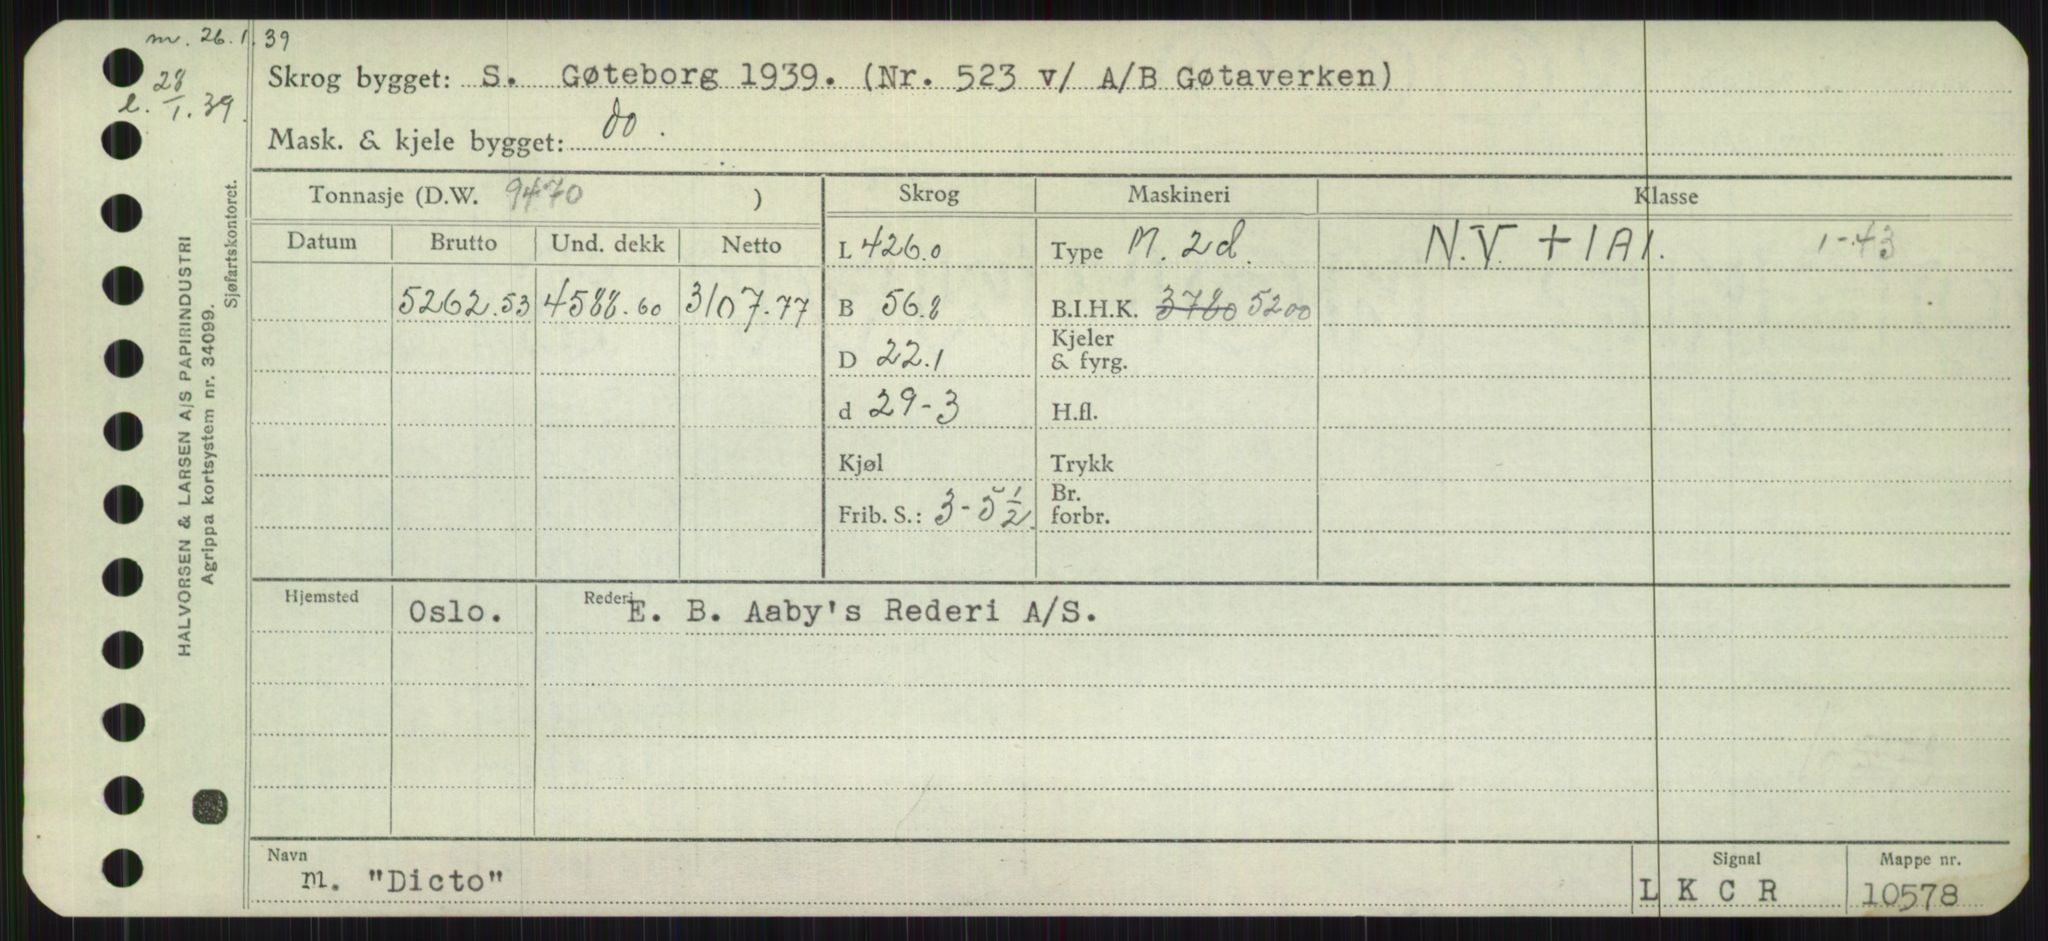 m. 26.1.39
28
l. 1.39.
Skrog bygget: S. Gøteborg 1939. (Nr. 523 v/ A/B Gøtaverken)
Mask. & kjele bygget: do.
Tonnasje (D.W. 9470 ) Skrog Maskineri Klasse
Datum Brutto Und. dekk Netto L 426.0 Type M. 2d. N.V. + 1A1. 1-43
5262.53 4588.60 3107.77 B 56.8 B.I.H.K. 3780 5200
D 22.1 Kjeler & fyrg.
d 29-3 H.fl.
Kjøl Trykk
Frib. S.: 3-5 1/2 Br. forbr.
Hjemsted Oslo. Rederi E. B. Aaby's Rederi A/S.
Navn Signal Mappe nr.
m. "Dicto" L K C R 10578
HALVORSEN & LARSEN A/S PAPIRINDUSTRI
Agrippa kortsystem nr. 34099.
Sjøfartskontoret.